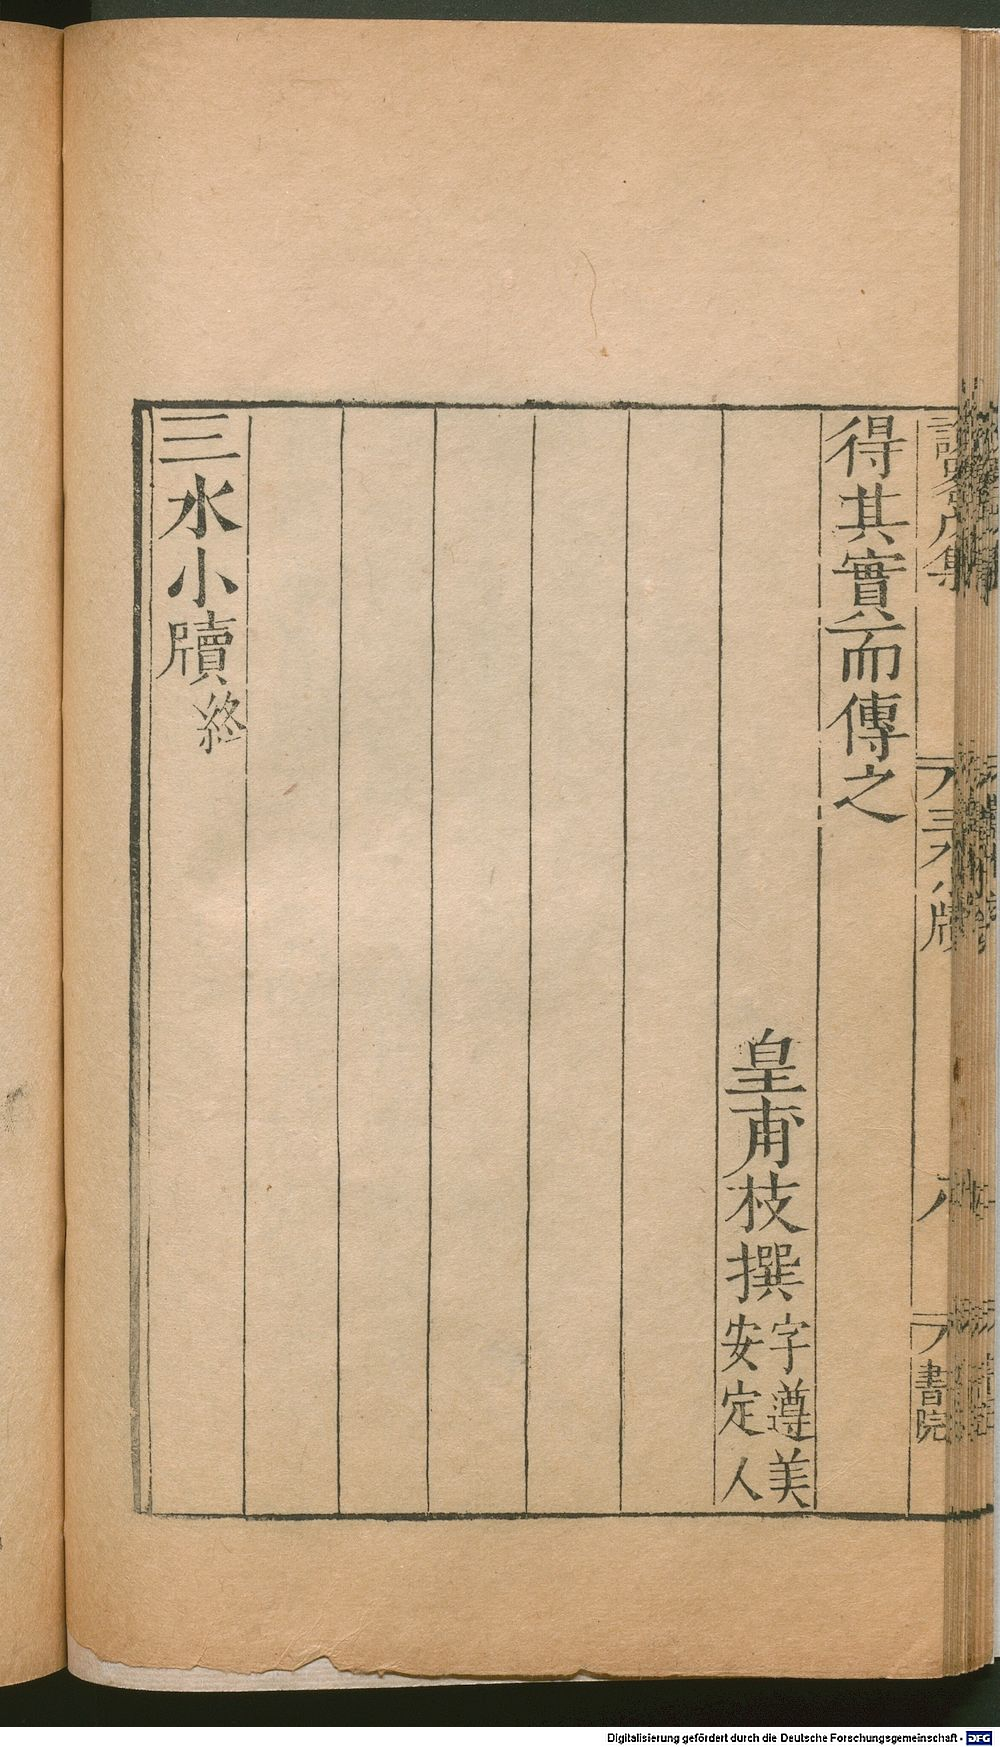 得其實而傳之
皇甫枝撰
字遵美
安定人
三水小牘終
書院
Digitalisierung gefördert durch die Deutsche Forschungsgemeinschaft - DFG